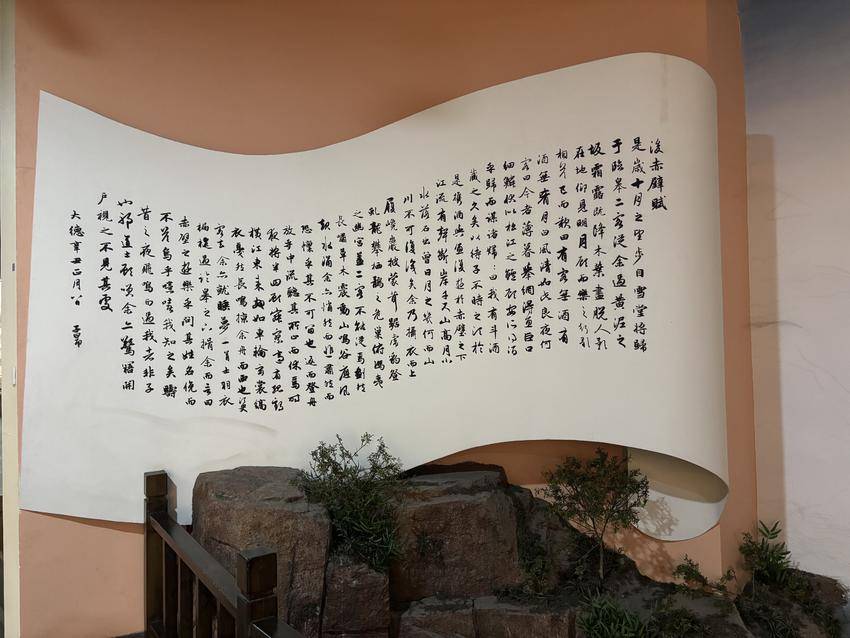 後赤壁賦
是歲十月之望步自雪堂將歸
于臨皋二客從余過黃泥之
坂霜露既降木葉盡脫人影
在地仰見明月顧而樂之行歌
相答已而歎曰有客無酒有
酒無肴月白風清如此良夜何
客曰今者薄暮舉網得魚巨口
細鱗狀似松江之鱸顧安所得酒
乎歸而謀諸婦婦曰我有斗酒
藏之久矣以待子不時之須於
是攜酒與魚復遊於赤壁之下
江流有聲斷岸千尺山高月小
水落石出曾日月之幾何而山
川不可復識矣余乃攝衣而上
履巉巖披蒙茸踞虎豹登
虬龍攀栖鶻之危巢俯馮夷
之幽宮蓋二客不能從焉劃然
長嘯草木震動山鳴谷應風
起水涌余亦悄然而悲肅然而
恐凜乎其不可留也返而登舟
放乎中流聽其所止而休焉時
夜將半四顧寂寥適有孤鶴
橫江東來翅如車輪玄裳縞
衣戛然長鳴掠余舟而西也須臾
客去余亦就睡夢一道士羽衣
翩躚過臨皋之下揖余而言曰
赤壁之遊樂乎問其姓名俛而
不答嗚呼噫嘻我知之矣疇
昔之夜飛鳴而過我者非子
也邪道士顧笑余亦驚悟開
戶視之不見其處
大德辛丑正月八日 子昂